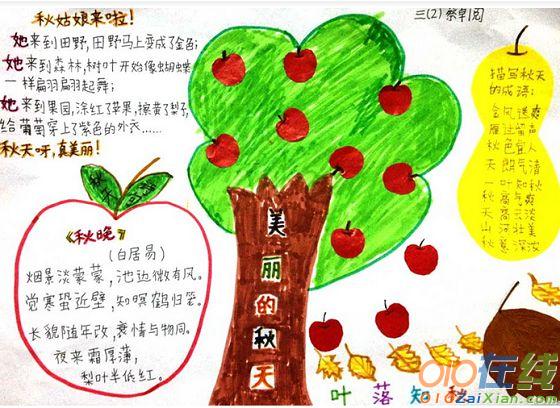 秋姑娘来啦!
她来到田野,田野马上变成了金色;
她来到森林,树叶开始像蝴蝶
一样翩翩起舞;
她来到果园,涂红了苹果,擦黄了梨子,
给葡萄穿上了紫色的外衣……
秋天呀,真美丽!
秋天
《秋晚》
(白居易)
烟景淡蒙蒙,池边微有风。
觉寒蛩近壁,知暝鹤归笼。
长貌随年改,衰情与物同。
夜来霜厚薄,
梨叶半低红。
美丽的秋天
三(2)
描写秋天
的成语:
金风送爽
雁过留声
秋色宜人
天朗气清
一叶知秋
秋高气爽
天高云淡
山河壮美
秋意深浓
叶落知秋
010在线
010zaiXian.com